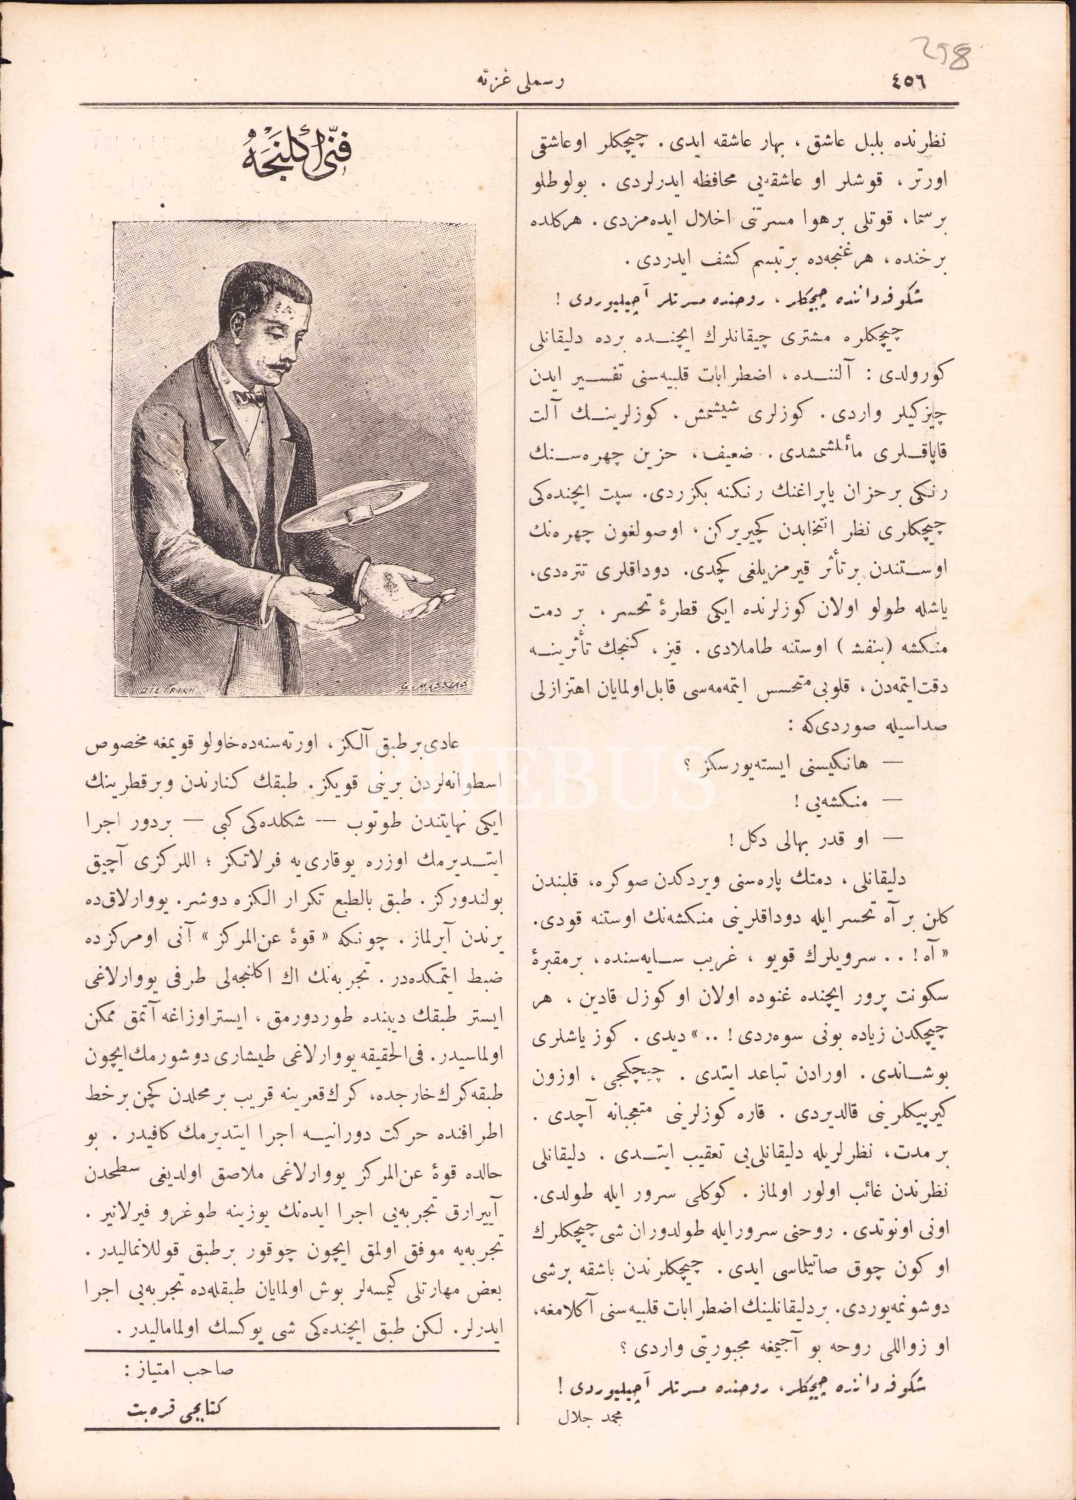 258
٤٥٦
رسملی غزته
نظرنده بلبل عاشق ، بهار عاشقه ایدی . چیچکلر اوعاشقی
اورتر ، قوشلر او عاشقه‌یی محافظه ایدرلردی . بولوطلو
برسما ، قوتلی برهوا مسرتنی اخلال ایده‌مزدی . هرکلده
برخنده ، هرغنجه‌ده برتبسم کشف ایدردی .
شکوفه‌داننده چیچکلر ، روحنده مسرتلر آچیلیوردی !
چیچکلره مشتری چیقانلرك ایچنـده برده دلیقانلی
کورولدی : آلنـنـده ، اضطرابات قلبیه‌سنی تفسـیر ایدن
چیزکیلر واردی . کوزلری شیشمش . کوزلرینـك آلت
قاپاقـلری مائلشمشدی . ضعیف ، حزین چهره‌سـنك
رنکی برخزان یاپراغنك رنکنه بکزردی . سپت ایچنده‌کی
چیچکلری نظر انتخابدن کچیریرکن ، اوصولغون چهره‌نك
اوسـتندن برتأثر قیرمزیلغی کچدی . دوداقلری تتره‌دی ،
یاشله طولو اولان کوزلرنده ایکی قطرهٔ تحسر ، بر دمت
منکشه (بنفشه) اوستنه طاملادی . قیز ، کنجك تأثرینـه
دقت‌ایتمه‌دن ، قلوبی متحسس ایتمه‌مه‌سی قابل‌اولمایان اهتزازلی
صداسیله صوردی‌که :
— هانکیسنی ایسته‌یورسکز ؟
— منکشه‌یی !
— او قدر بهالی دکل !
دلیقانلی ، دمتك پاره‌سنی ویردکدن صوکره ، قلبندن
کلن بر آه تحسر ایله دوداقلرینی منکشه‌نك اوستنه قودی .
« آه ! . . سرویلرك قویو ، غریب سـایه‌سنده ، برمقبرهٔ
سکونت پرور ایچنده غنوده اولان او کوزل قادین ، هر
چیچکدن زیاده بونی سوه‌ردی ! . . » دیدی . کوز یاشلری
بوشـاندی . اورادن تباعد ایتدی . چیچکجی ، اوزون
کیرپیکلرینی قالدیردی . قاره کوزلرینی متعجبانه آچدی .
برمدت ، نظرلریله دلیقانلی‌یی تعقیب ایتـدی . دلیقانلی
نظرندن غائب اولور اولماز . کوکلی سرور ایله طولدی .
اونی اونوتدی . روحنی سرورایله طولدوران شی چیچکلرك
او کون چوق صاتیلاسی ایدی . چیچکلرندن باشقه برشی
دوشونمه‌یوردی . بردلیقانلینك اضطرابات قلبیه‌سنی آکلامغه ،
او زواللی روحه بو آجیمغه مجبوریتی واردی ؟
شکوفه‌داننده چیچکلر ، روحنده مسرتلر آچیلیوردی !
محمد جلال
فنّی اکلنجه
DIETRICH
عادی برطبق آلکز ، اورته‌سنه‌ده خاولو قویمغه مخصوص
اسطوانه‌لردن برینی قویکز . طبقك کنارندن وبرقطرینك
ایکی نهایتندن طوتوب — شکلده‌کی کبی — بردور اجرا
ایتـدیرمك اوزره یوقاری‌یه فرلاتکز ؛ اللرکزی آچیق
بولندورکز . طبق بالطبع تکرار الکزه دوشر . یووارلاق‌ده
یرندن آیرلماز . چونکه « قوهٔ عن‌المرکز » آنی اومرکزده
ضبط ایتمکده‌در . تجربه‌نك اك اکلنجه‌لی طرفی یووارلاغی
ایستر طبقك دیبنده طوردورمق ، ایستراوزاغه آتمق ممکن
اولماسیدر . فی‌الحقیقه یووارلاغی طیشاری دوشورمك‌ایچون
طبقه‌کرك خارجده ، کرك قعرینه قریب برمحلدن کچن برخط
اطرافنده حرکت دورانیـه اجرا ایتدیرمك کافیدر . بو
حالده قوهٔ عن‌المرکز یووارلاغی ملاصق اولدیغی سطحدن
آییرارق تجربه‌یی اجرا ایده‌نك یوزینه طوغرو فیرلاتیر .
تجربه‌یه موفق اولمق ایچون چوقور برطبق قوللانمالیدر .
بعض مهارتلی کیمسه‌لر بوش اولمایان طبقله‌ده تجربه‌یی اجرا
ایدرلر . لکن طبق ایچنده‌کی شی یوکسك اولمامالیدر .
صاحب امتیاز :
کتابجی قره‌بت
PHEBUS